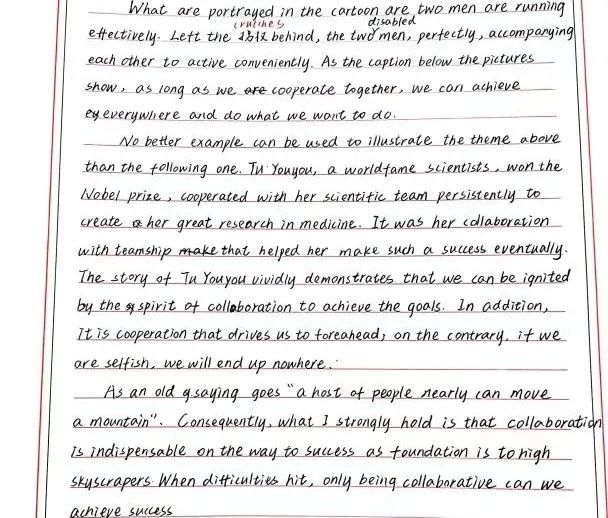 What are portrayed in the cartoon are two men are running
crutches disabled
effectively. Left the 拐杖 behind, the two men, perfectly, accompanying
each other to active conveniently. As the caption below the pictures
show, as long as we are cooperate together, we can achieve
ey everywhere and do what we want to do.
No better example can be used to illustrate the theme above
than the following one. Tu Youyou, a worldfame scientists, won the
Nobel prize, cooperated with her scientific team persistently to
create a her great research in medicine. It was her collaboration
with teamship make that helped her make such a success eventually.
The story of Tu Youyou vividly demonstrates that we can be ignited
by the spirit of collaboration to achieve the goals. In addition,
It is cooperation that drives us to foreahead; on the contrary, if we
are selfish, we will end up nowhere.
As an old saying goes "a host of people nearly can move
a mountain". Consequently, what I strongly hold is that collaboration
is indispensable on the way to success as foundation is to high
skyscrapers. When difficulties hit, only being collaborative can we
achieve success